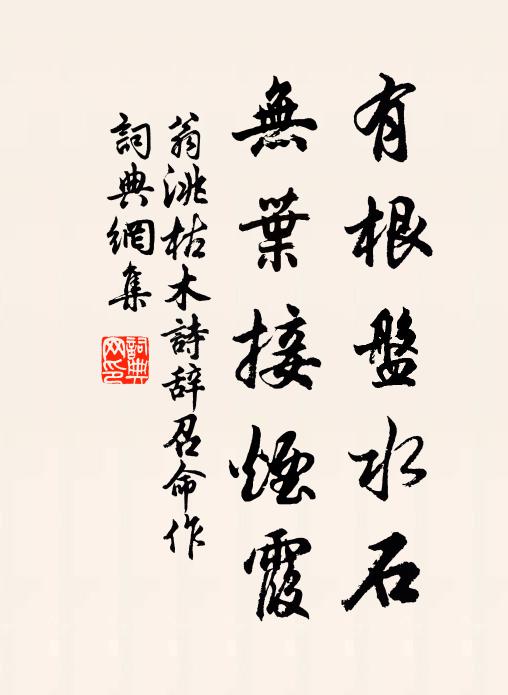 有根盤水石
無葉接煙霞
翁洮枯木詩辞召命作
詞典網集
詞典
网印